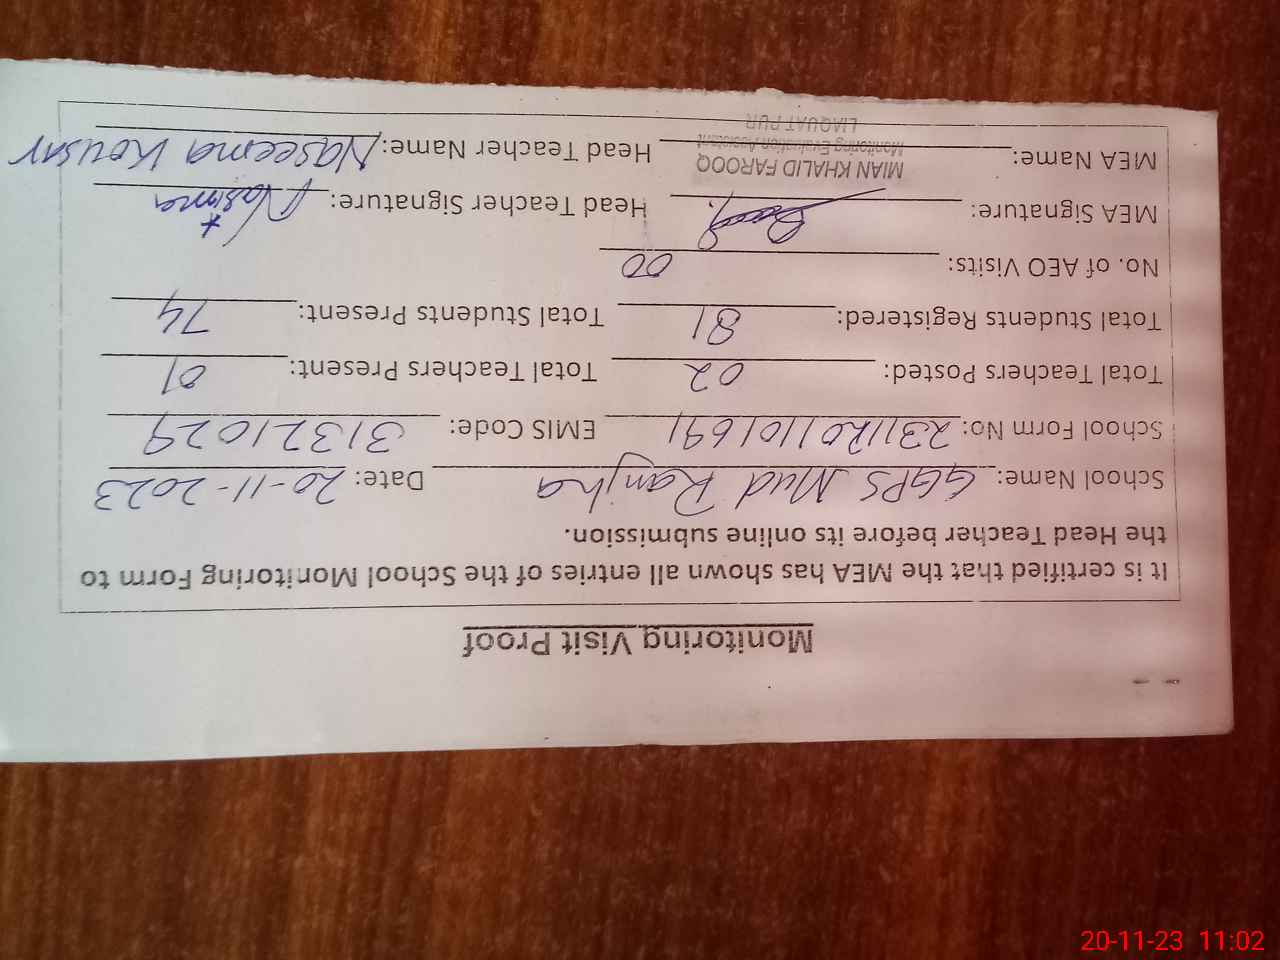 Monitoring Visit Proof
It is certified that the MEA has shown all entries of the School Monitoring Form to
the Head Teacher before its online submission.
School Name: GGPS Mud Ranjha Date: 20-11-2023
School Form No: 231120110169 EMIS Code: 31321029
Total Teachers Posted: 02 Total Teachers Present: 01
Total Students Registered: 81 Total Students Present: 74
No. of AEO Visits: 00
MEA Signature: Head Teacher Signature: Nasima
MEA Name: MIAN KHALID FAROOQ Head Teacher Name: Naseema Kousar
Monitoring Evaluation Assistant
LIAQUATPUR
20-11-23 11:02